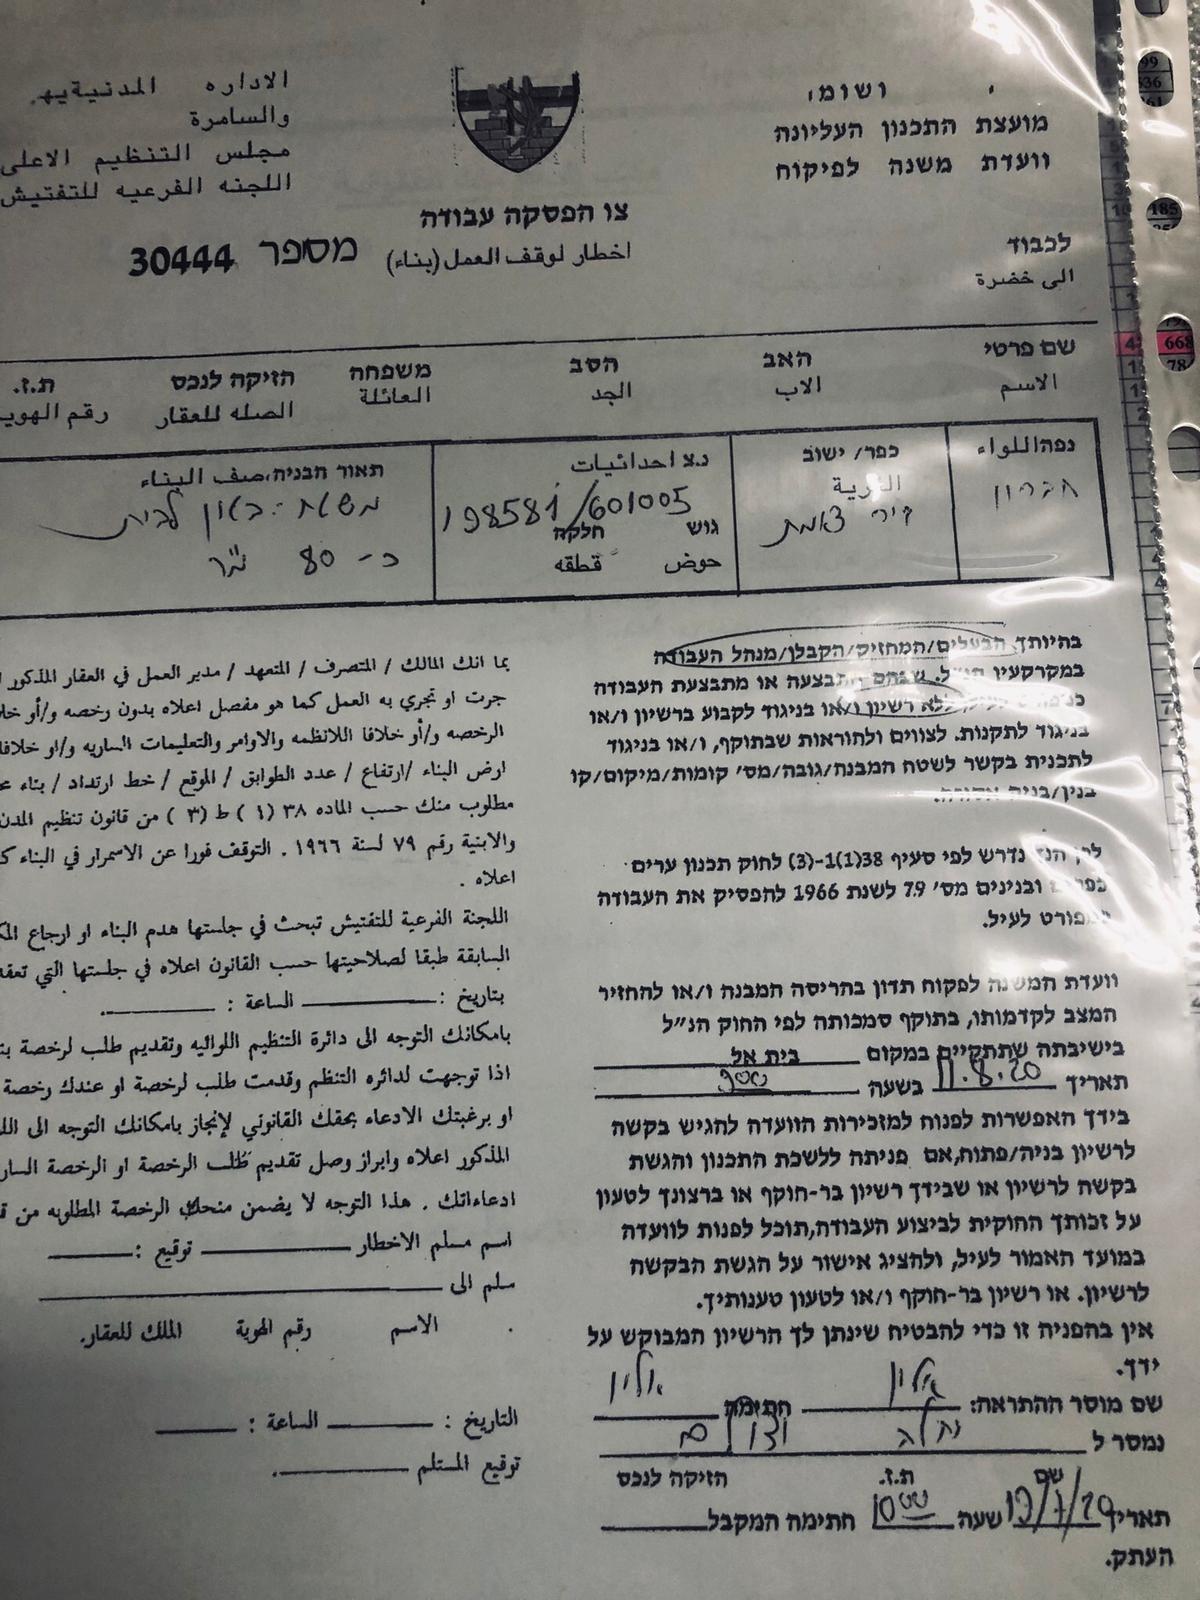 ושומ
מועצת התכנון העליונה
וועדת משנה לפיקוח
الاداره المدنيةيهـ
والسامرة
مجلس التنظيم الاعلى
اللجنه الفرعيه للتفتيش
צו הפסקה עבודה
اخطار لوقف العمل (بناء)
מספר 30444
לכבוד
الى خضرة
שם פרטי האב הסב משפחה הזיקה לנכס ת.ז.
الاسم الاب الجد العائلة الصله للعقار رقم الهوي
נפה اللواء
חברון
כפר/ ישוב
القرية
דיר צאמת
נ.צ احداثيات
198581/601005
גוש חלקה
حوض قطقه
תאור הבניה، صف البناء
לבית
כ- 80 מ"ר
בהיותך הבעלים/המחזיק/הקבלן/מנהל העבודה
במקרקעין הנ"ל. שבהם התבצעה או מתבצעת העבודה
ללא רשיון ו/או בניגוד לקבוע ברשיון ו/או
בניגוד לתקנות. לצווים ולהוראות שבתוקף, ו/או בניגוד
לתכנית בקשר לשטח המבנה/גובה/מס' קומות/מיקום/קו
בנין/בניה אסורה.
לכן הנך נדרש לפי סעיף 38(1)1-(3) לחוק תכנון ערים
כפרים ובנינים מס' 79 לשנת 1966 להפסיק את העבודה
כמפורט לעיל.
וועדת המשנה לפקוח תדון בהריסה המבנה ו/או להחזיר
המצב לקדמותו, בתוקף סמכותה לפי החוק הנ"ל
בישיבתה שתתקיים במקום בית אל
תאריך 11.8.20 בשעה 900
בידך האפשרות לפנות למזכירות הוועדה להגיש בקשה
לרשיון בניה/פתוח,אם פניתה ללשכת התכנון והגשת
בקשה לרשיון או שבידך רשיון בר-חוקף או ברצונך לטעון
על זכותך החוקית לביצוע העבודה,תוכל לפנות לוועדה
במועד האמור לעיל, ולהציג אישור על הגשת הבקשה
לרשיון. או רשיון בר-חוקף ו/או לטעון טענותיך.
אין בהפניה זו כדי להבטיח שינתן לך הרשיון המבוקש על
ידך.
שם מוסר ההתראה: חתימה
נמסר ל
שם ת.ז. הזיקה לנכס
תאריך 19/7/20 שעה 1000 חתימה המקבל
העתק.
بما انك المالك / المتصرف / المتعهد / مدير العمل في العقار المذكور
جرت او تجري به العمل كما هو مفصل اعلاه بدون رخصه و/أو
الرخصه و/أو خلافا اللانظمه والاوامر والتعليمات الساريه و/او خلافا
ارض البناء /ارتفاع / عدد الطوابق / الموقع / خط ارتداد / بناء
مطلوب منك حسب الماده ٣٨ (١ ) ط (٣ ) من قانون تنظيم المدن
والابنية رقم ٧٩ لسنة ١٩٦٦ . التوقف فورا عن الاسمرار في البناء
اعلاه .
اللجنة الفرعية للتفتيش تبحث في جلستها هدم البناء او ارجاع
السابقة طبقا لصلاحيتها حسب القانون اعلاه في جلستها التي
بتاريخ : الساعة :
بامكانك التوجه الى دائرة التنظيم اللوائيه وتقديم طلب لرخصة
اذا توجهت لدائره التنظم وقدمت طلب لرخصة او عندك رخصة
او برغبتك الادعاء بحقك القانوني لإنجاز بامكانك التوجه الى
المذكور اعلاه وابراز وصل تقديم طلب الرخصة او الرخصة
ادعاءاتك . هذا التوجه لا يضمن منحك الرخصة المطلوبه من
اسم مسلم الاخطار توقيع :
سلم الى
الاسم رقم الهوية الملك للعقار.
التاريخ : الساعة :
توقيع المستلم